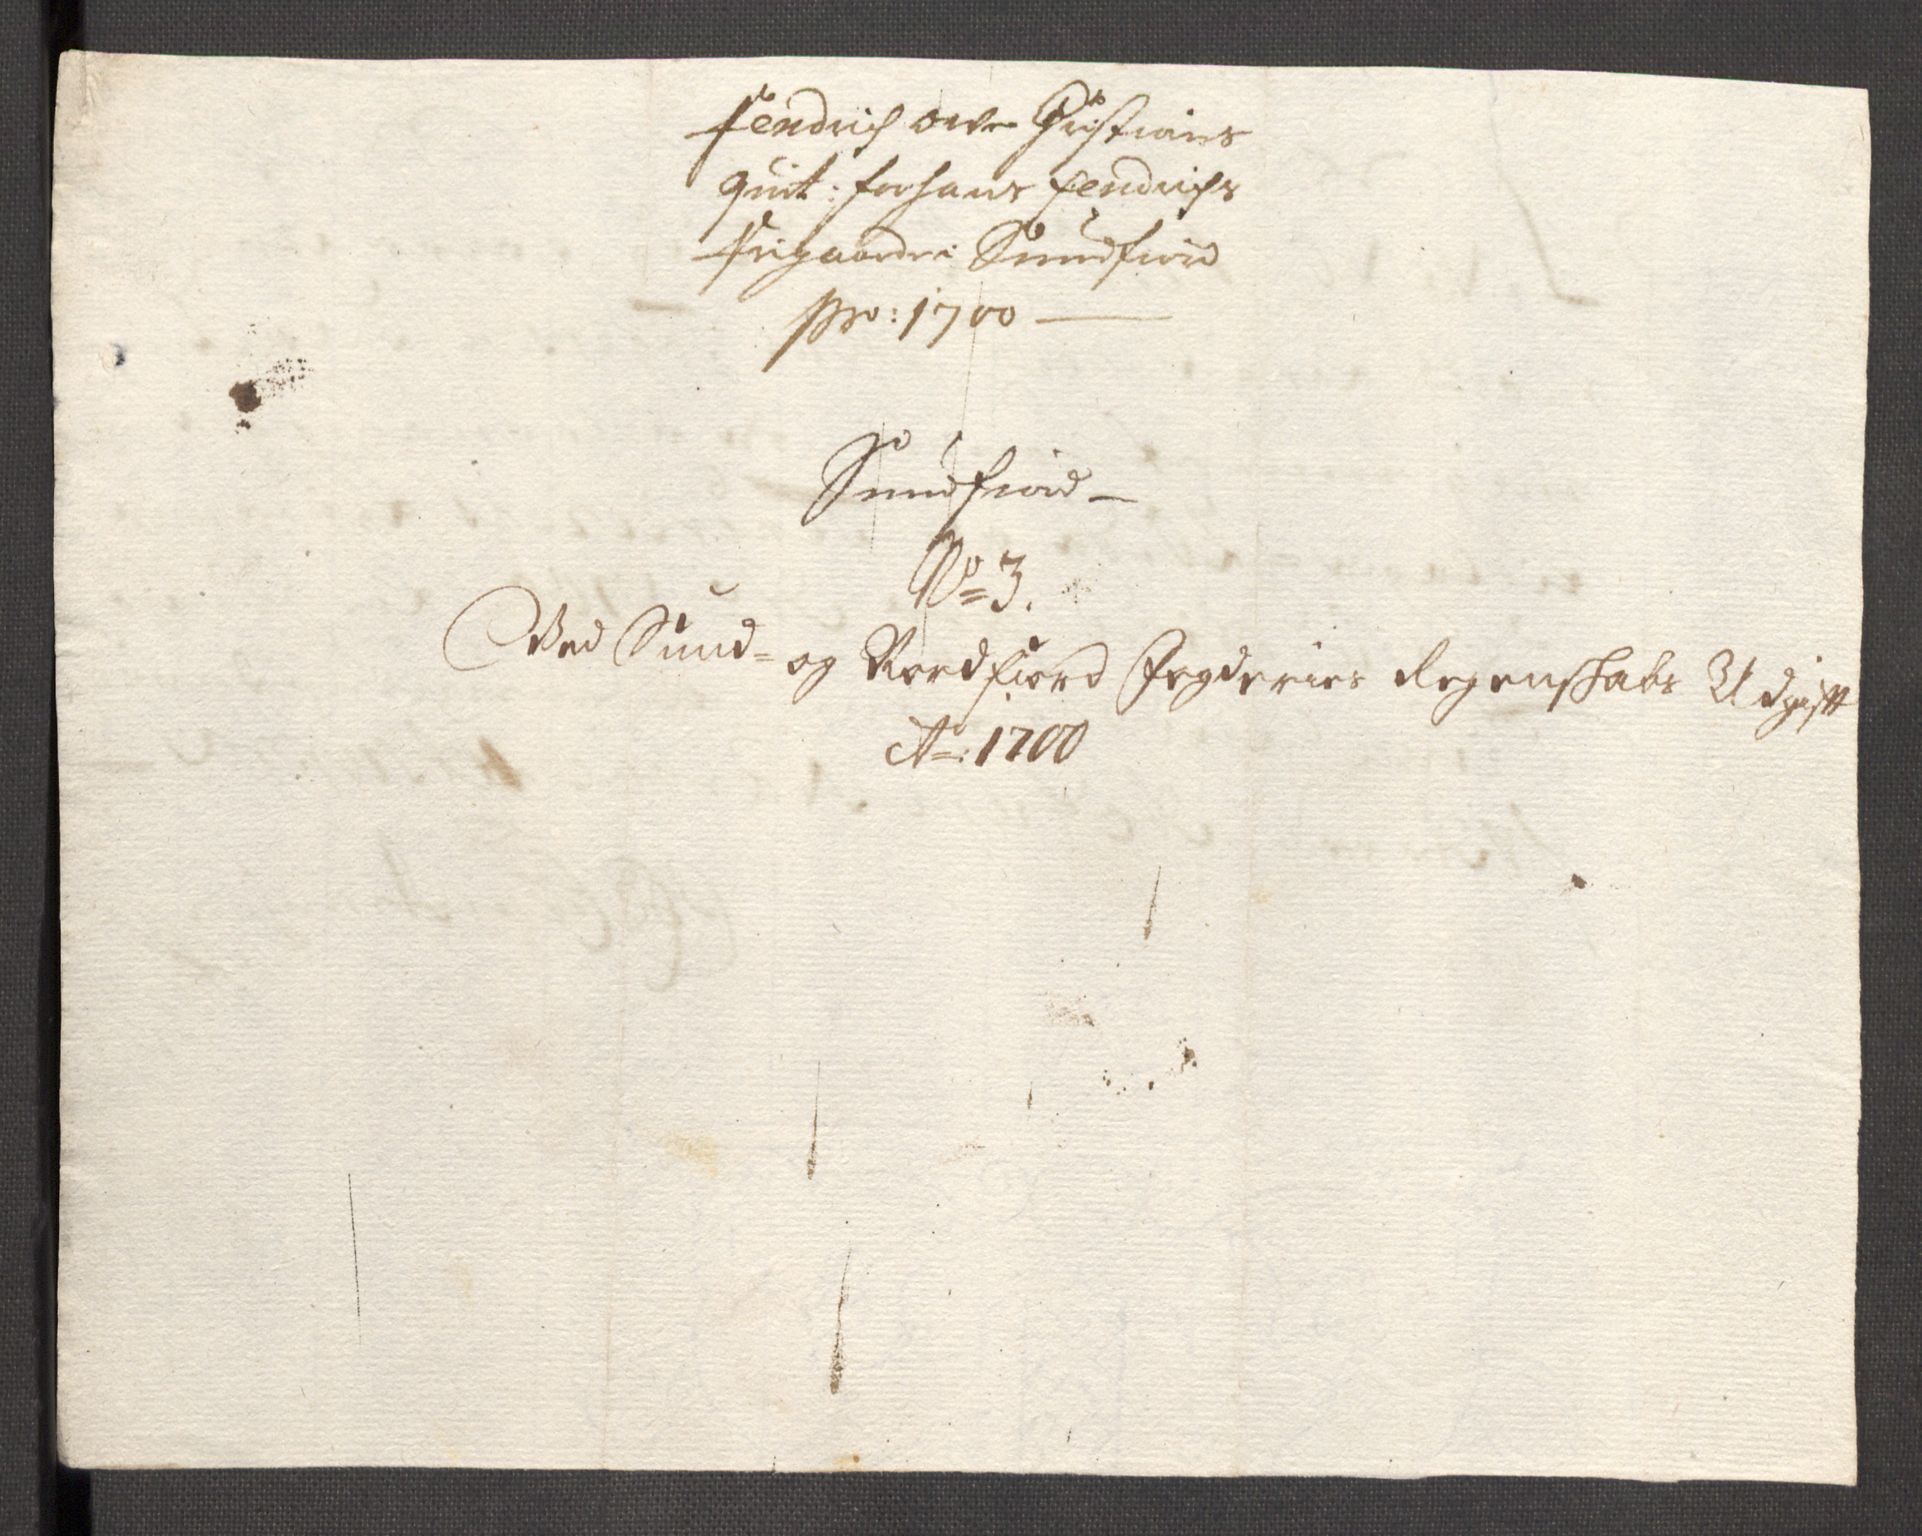 Fendrich Ove Christians
quit: for hans Fendrichs
Friegaard i Sundfiord
pro: 1700
Sundfiord
No 3.
Ved Sund- og Nordfiord Fogderies Regenskabs Udgift
Ao: 1700